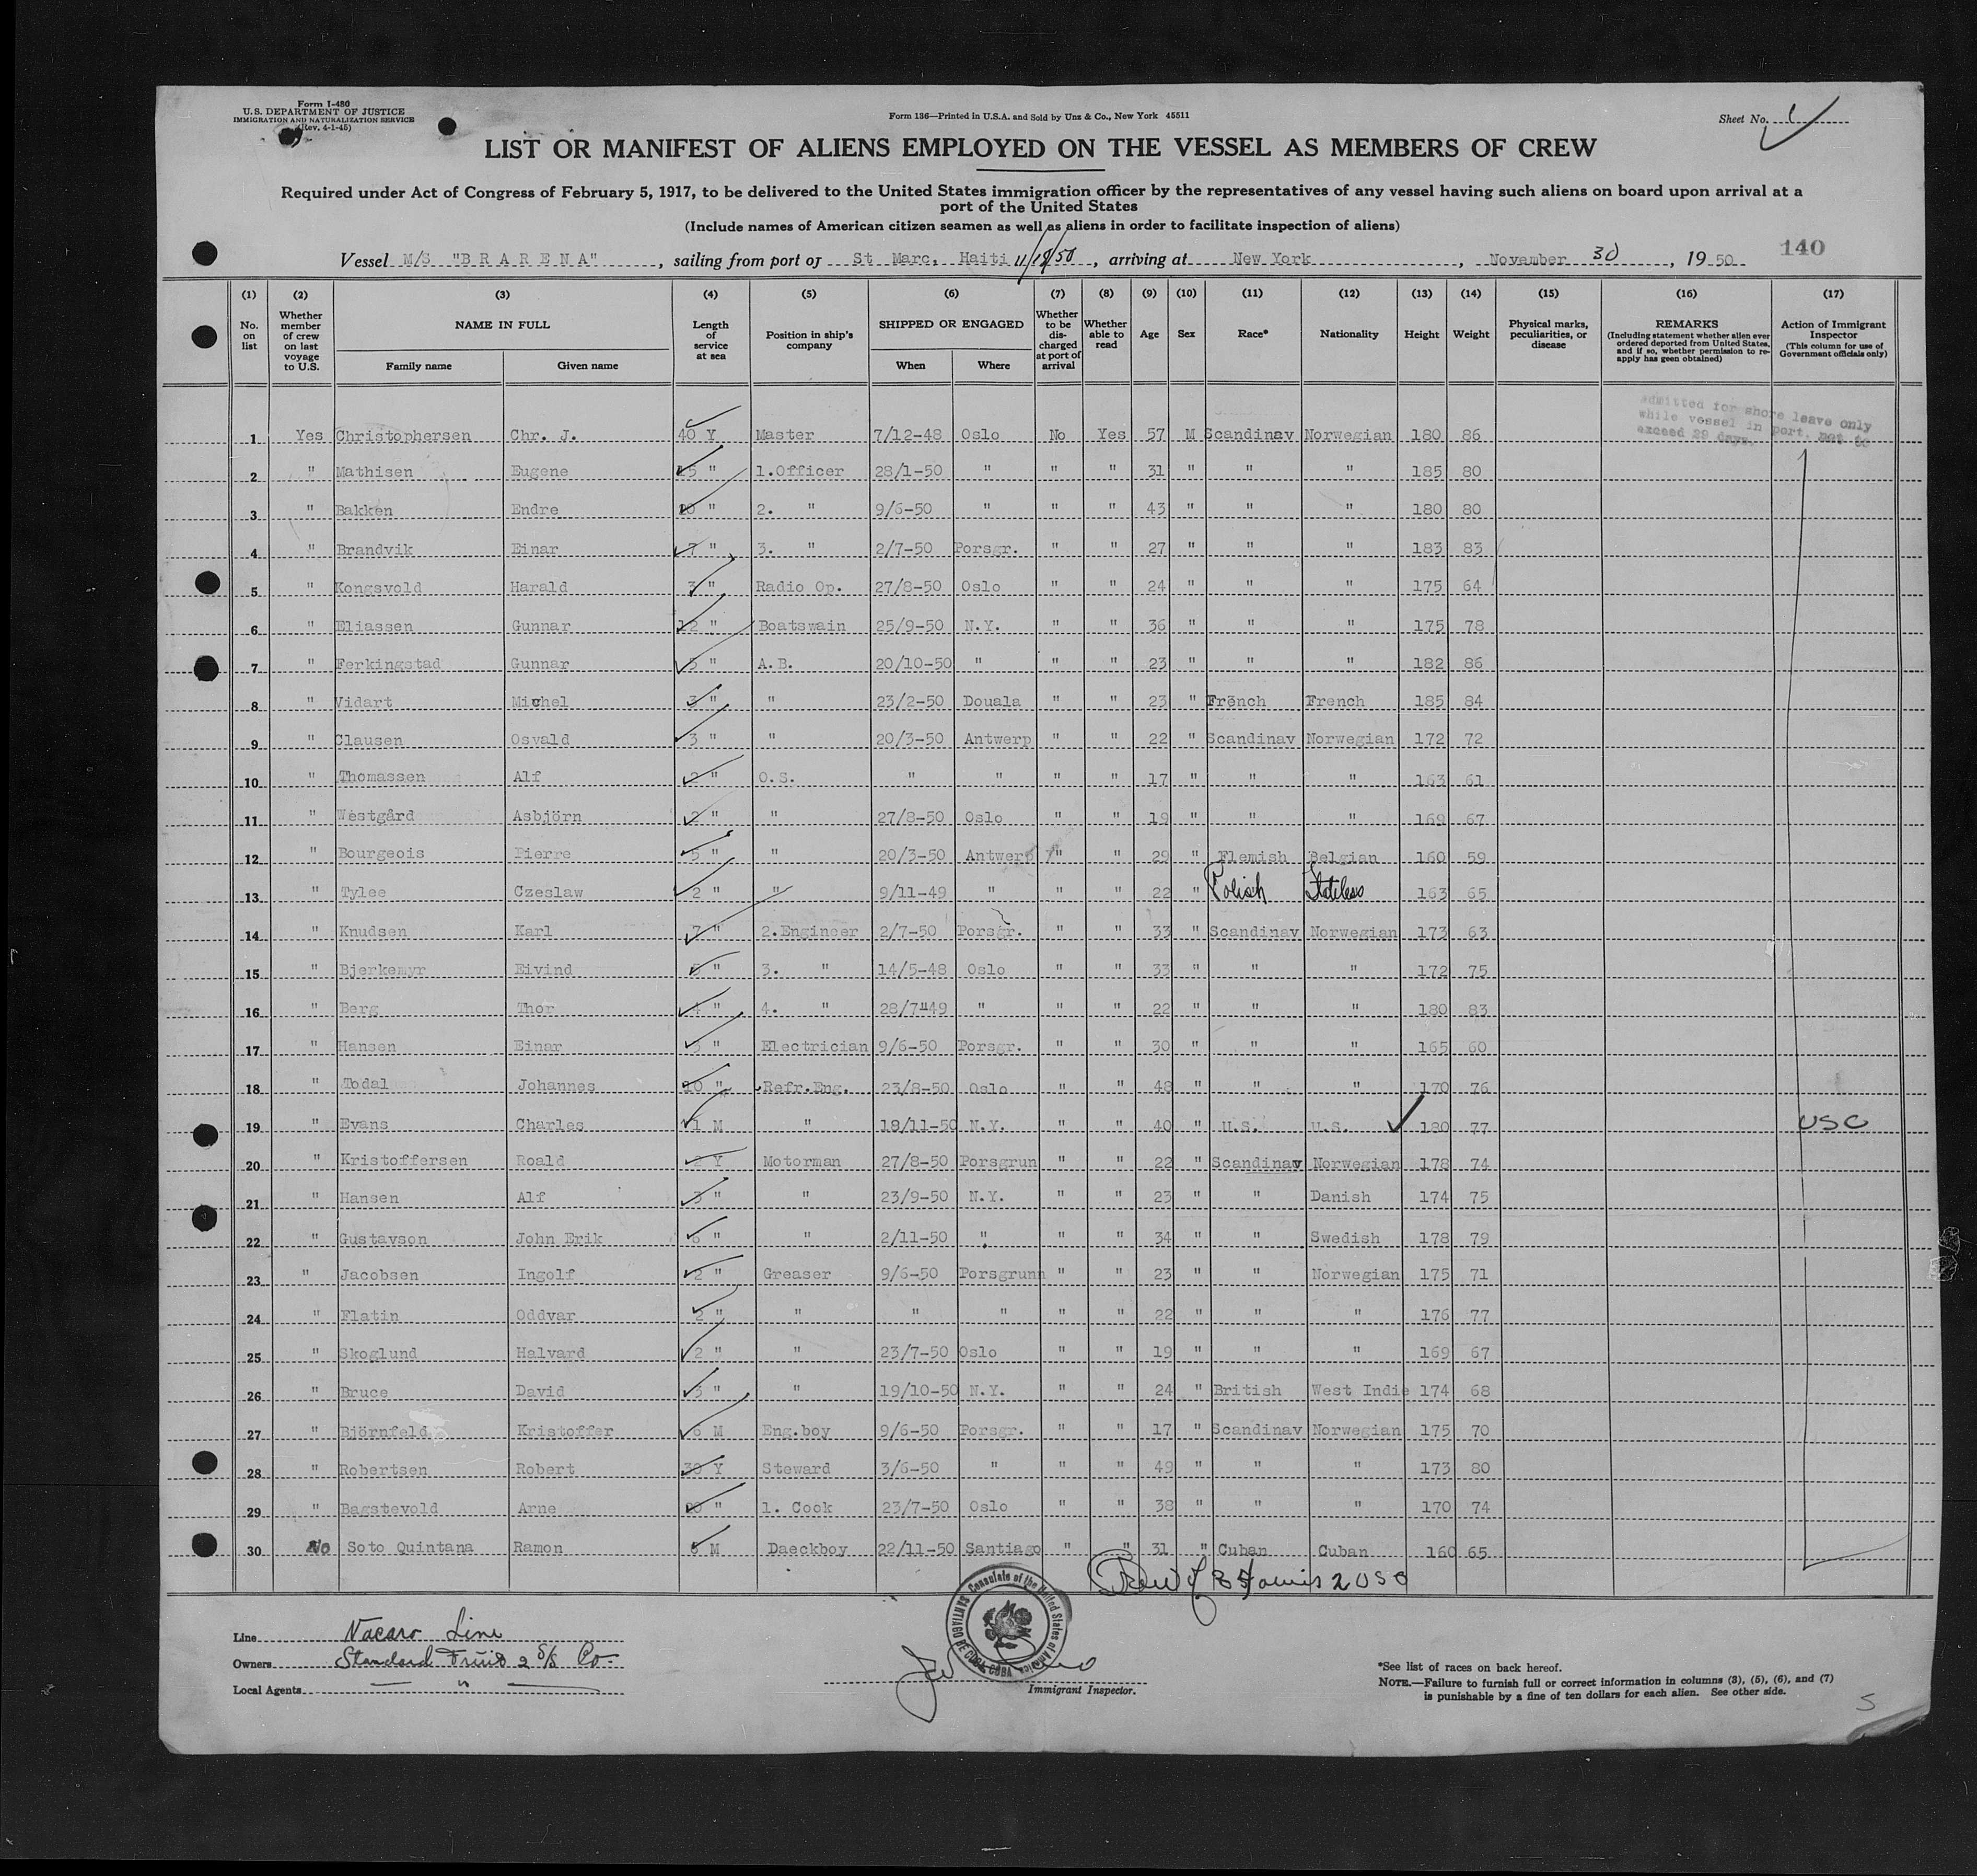 Form I-480
U.S. DEPARTMENT OF JUSTICE
IMMIGRATION AND NATURALIZATION SERVICE
(Rev. 4-1-45)
Form 136—Printed in U.S.A. and Sold by Unz & Co., New York 45511
Sheet No. 1
LIST OR MANIFEST OF ALIENS EMPLOYED ON THE VESSEL AS MEMBERS OF CREW
Required under Act of Congress of February 5, 1917, to be delivered to the United States immigration officer by the representatives of any vessel having such aliens on board upon arrival at a
port of the United States
(Include names of American citizen seamen as well as aliens in order to facilitate inspection of aliens)
Vessel M/S "BRARENA", sailing from port of St Marc, Haiti, arriving at New York, November 30, 1950
140
(1) (2) (3) (4) (5) (6) (7) (8) (9) (10) (11) (12) (13) (14) (15) (16) (17)
No. on list
Whether member of crew on last voyage to U.S.
NAME IN FULL
Family name
Given name
Length of service at sea
Position in ship's company
SHIPPED OR ENGAGED
When
Where
Whether to be discharged at port of arrival
Whether able to read
Age
Sex
Race*
Nationality
Height
Weight
Physical marks, peculiarities, or disease
REMARKS
(Including statement whether alien ever ordered deported from United States, and if so, whether permission to re-apply has geen obtained)
Action of Immigrant Inspector
(This column for use of Government officials only)
Admitted for shore leave only
while vessel in port, not to
exceed 29 days.
1 Yes Christophersen Chr. J. 40 Y Master 7/12-48 Oslo No Yes 57 M Scandinav Norwegian 180 86
2 " Mathisen Eugene 15 " 1.Officer 28/1-50 " " " 31 " " " 185 80
3 " Bakken Endre " 2. " 9/6-50 " " " 43 " " " 180 80
4 " Brandvik Einar 7 " 3. " 2/7-50 Porsgr. " " 27 " " " 183 83
5 " Kongsvold Harald 3 " Radio Op. 27/8-50 Oslo " " 24 " " " 175 64
6 " Eliassen Gunnar 12 " Boatswain 25/9-50 N.Y. " " 36 " " " 175 78
7 " Ferkingstad Gunnar 5 " A.B. 20/10-50 " " " 23 " " " 182 86
8 " Vidart Michel 3 " " 23/2-50 Douala " " 23 " French French 185 84
9 " Clausen Osvald 3 " " 20/3-50 Antwerp " " 22 " Scandinav Norwegian 172 72
10 " Thomassen Alf 2 " O.S. " " " " 17 " " " 163 61
11 " Westgård Asbjörn 2 " " 27/8-50 Oslo " " 19 " " " 169 67
12 " Bourgeois Pierre 5 " " 20/3-50 Antwerp " " 29 " Flemish Belgian 160 59
13 " Tylee Czeslaw 2 " " 9/11-49 " " " 22 " Polish Stateless 163 65
14 " Knudsen Karl 7 " 2.Engineer 2/7-50 Porsgr. " " 33 " Scandinav Norwegian 173 63
15 " Bjerkemyr Eivind 6 " 3. " 14/5-48 Oslo " " 33 " " " 172 75
16 " Berg Thor 4 " 4. " 28/7-49 " " " 22 " " " 180 83
17 " Hansen Einar 5 " Electrician 9/6-50 Porsgr. " " 30 " " " 165 60
18 " Todal Johannes 20 " Refr.Eng. 23/8-50 Oslo " " 48 " " " 170 76
19 " Evans Charles 1 M " 18/11-50 N.Y. " " 40 " U.S. U.S. 180 77 USC
20 " Kristoffersen Roald 2 Y Motorman 27/8-50 Porsgrun " " 22 " Scandinav Norwegian 178 74
21 " Hansen Alf 3 " " 23/9-50 N.Y. " " 23 " " Danish 174 75
22 " Gustavson John Erik 6 " " 2/11-50 " " " 34 " " Swedish 178 79
23 " Jacobsen Ingolf 2 " Greaser 9/6-50 Porsgrunn " " 23 " " Norwegian 175 71
24 " Flatin Oddvar 2 " " " " " " 22 " " " 176 77
25 " Skoglund Halvard 2 " " 23/7-50 Oslo " " 19 " " " 169 67
26 " Bruce David 3 " " 19/10-50 N.Y. " " 24 " British West Indie 174 68
27 " Björnfeld Kristoffer 6 M Eng.boy 9/6-50 Porsgr. " " 17 " Scandinav Norwegian 175 70
28 " Robertsen Robert 30 Y Steward 3/6-50 " " " 49 " " " 173 80
29 " Bagstevold Arne 20 " 1. Cook 23/7-50 Oslo " " 38 " " " 170 74
30 No Soto Quintana Ramon 6 M Daeckboy 22/11-50 Santiago " " 31 " Cuban Cuban 160 65
2 USC
Consulate of the United States of America
SANTIAGO DE CUBA, CUBA
Line Vacaro Line
Owners Standard Fruit & S/S Co.
Local Agents "
Immigrant Inspector.
*See list of races on back hereof.
NOTE.—Failure to furnish full or correct information in columns (3), (5), (6), and (7)
is punishable by a fine of ten dollars for each alien. See other side.
5